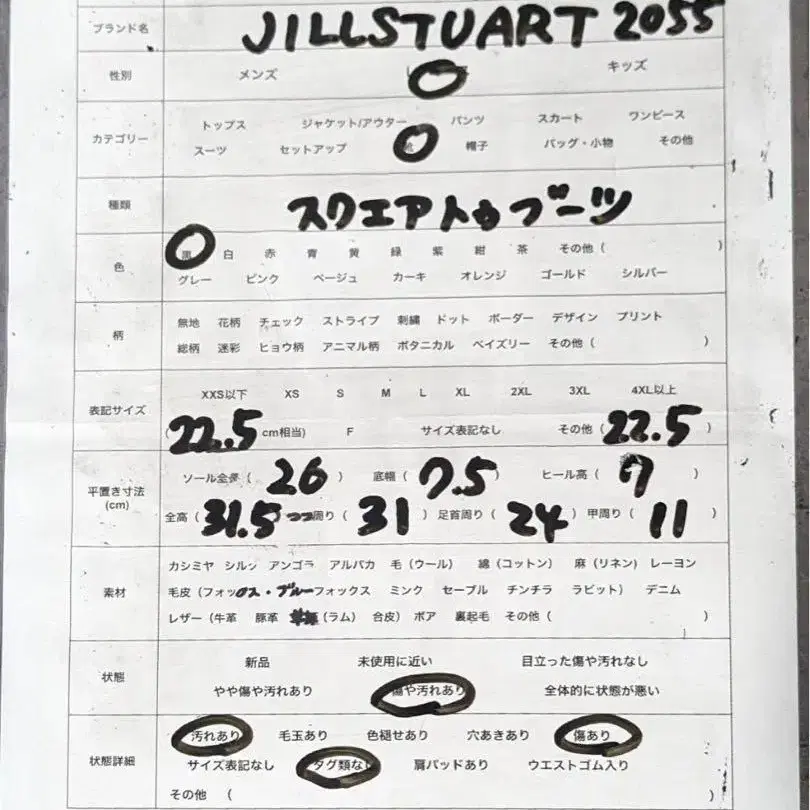 ブランド名 JILLSTUART 2055
性別 メンズ キッズ
カテゴリー トップス ジャケット/アウター パンツ スカート ワンピース
スーツ セットアップ 帽子 バッグ・小物 その他
種類 スクエアトゥブーツ
色 黒 白 赤 青 黄 緑 紫 紺 茶 その他( )
グレー ピンク ベージュ カーキ オレンジ ゴールド シルバー
柄 無地 花柄 チェック ストライプ 刺繍 ドット ボーダー デザイン プリント
総柄 迷彩 ヒョウ柄 アニマル柄 ボタニカル ペイズリー その他( )
表記サイズ XXS以下 XS S M L XL 2XL 3XL 4XL以上
(22.5cm相当) F サイズ表記なし その他(22.5)
平置き寸法(cm) ソール全長(26) 底幅(7.5) ヒール高(7)
全高(31.5 つつ周り(31) 足首周り(24) 甲周り(11)
素材 カシミヤ シルク アンゴラ アルパカ 毛(ウール) 綿(コットン) 麻(リネン) レーヨン
毛皮(フォックス・ブルーフォックス ミンク セーブル チンチラ ラビット) デニム
レザー(牛革 豚革 (ラム) 合皮) ボア 裏起毛 その他( )
状態 新品 未使用に近い 目立った傷や汚れなし
やや傷や汚れあり 傷や汚れあり 全体的に状態が悪い
状態詳細 汚れあり 毛玉あり 色褪せあり 穴あきあり 傷あり
サイズ表記なし タグ類なし 肩パッドあり ウエストゴム入り
その他 ( )